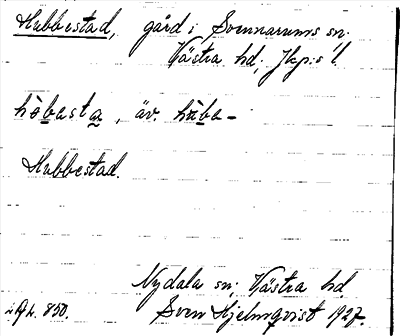 Hubbestad, gård i Svennarums sn.
Västra hd, Jkp:s l.
hòbasta, äv. hùba-
Hubbestad.
Nydala sn, Västra hd
Sven Hjelmqvist 1927.